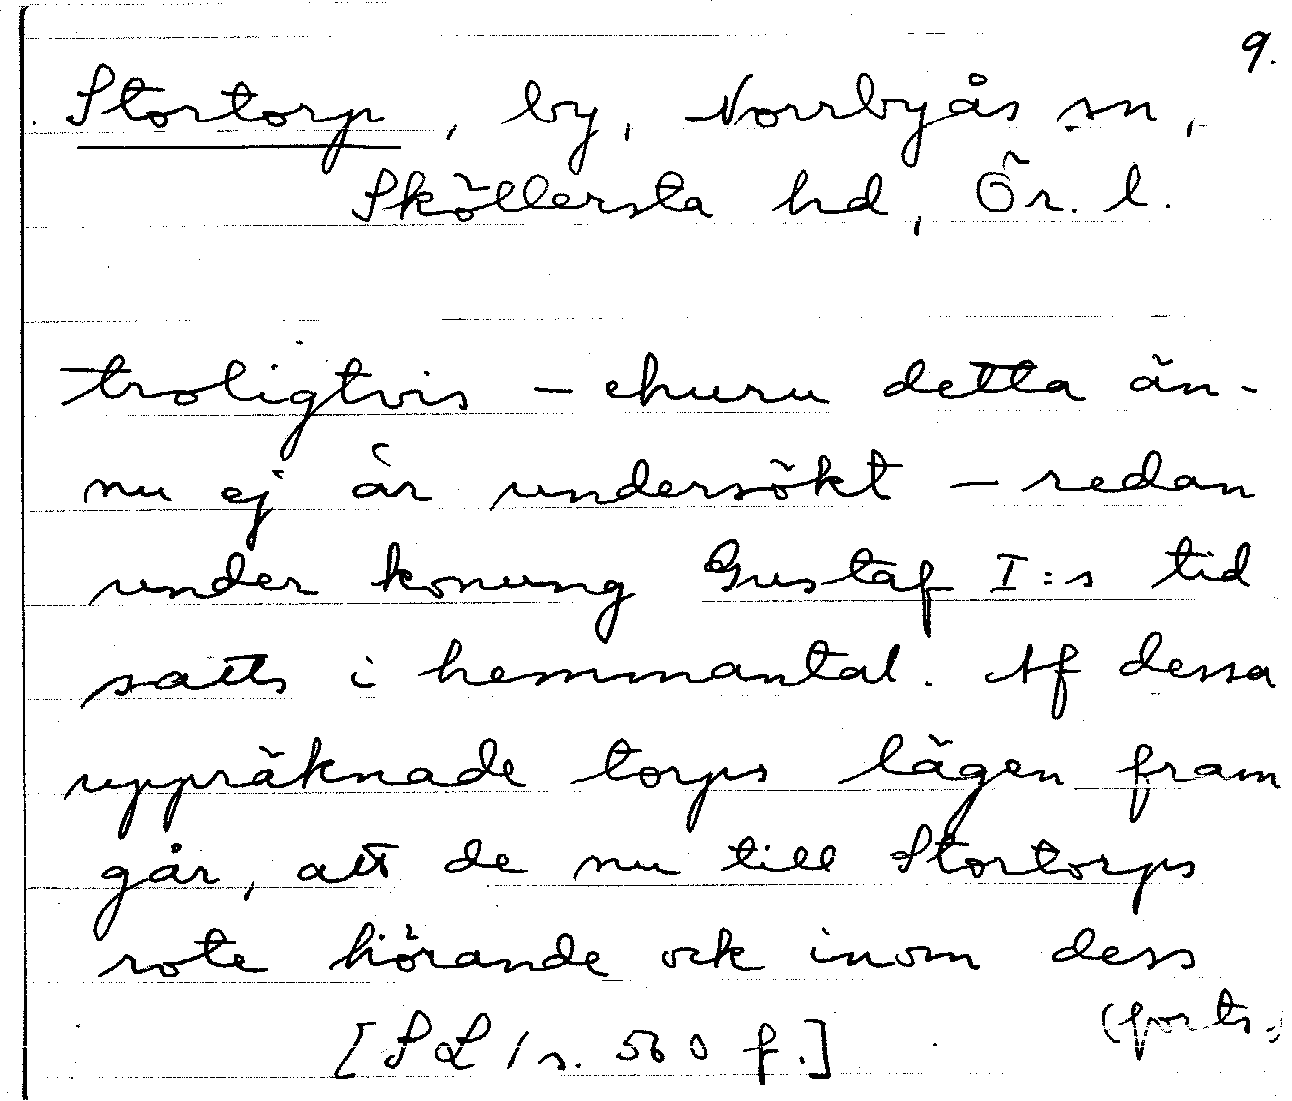 9.
Stortorp, by, Norrbyås sn,
Sköllersta hd, Ör. l.
troligtvis - ehuru detta än-
nu ej är undersökt - redan
under konung Gustaf I:s tid
satts i hemmantal. Af dessa
uppräknade torps lägen fram
går, att de nu till Stortorps
rote hörande ock inom dess
(forts.)
[SL 1 s. 560 f.]